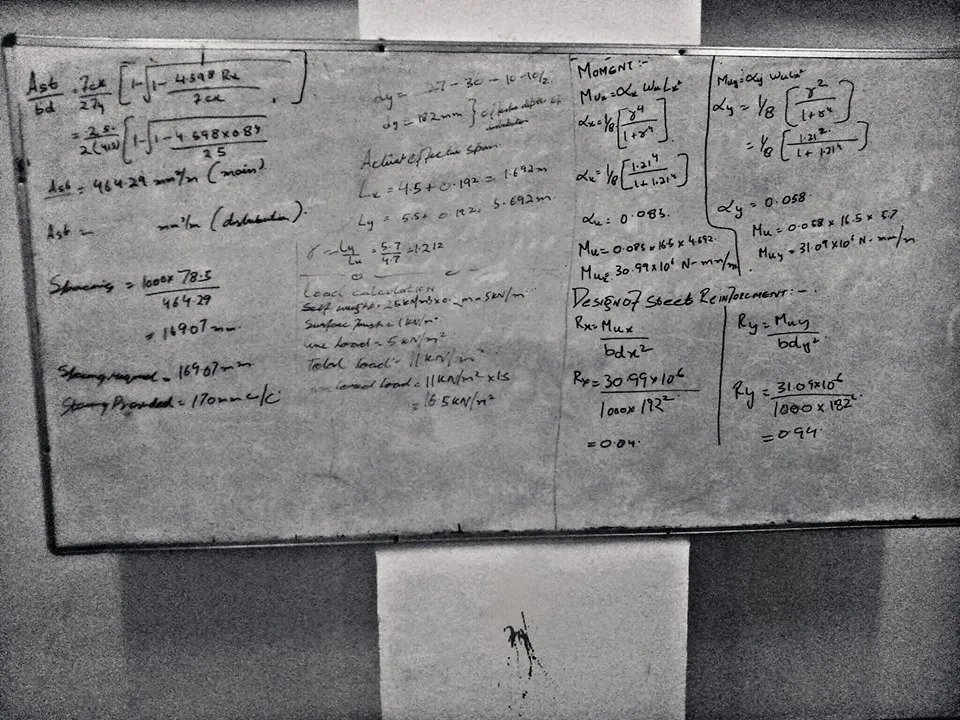 Ast/bd = 7ck/27y [1-√1- 4.598 Rx/7ck]
= 25/2(412) [1-√1- 4.598×0.84/25]
Ast = 464.29 mm²/m (main)
Ast = mm²/m (distribution).
Spacing = 1000×78.5/464.29
= 16907 mm.
= 16907 mm
Spacing Provided = 170mm c/c
dy = 27-30-10-10/2
dy = 182mm
Actual effective span.
Lx = 4.5+0.192 = 1.692m
Ly = 5.5+ 0.192, 5.692m
r = Ly/Lx = 5.7/4.7 = 1.212
Load calculation
Self weight = 25KN/m³×0. m = 5KN/m²
Surface finish = 1KN/m²
Live Load = 5KN/m²
Total Load = 11KN/m²
Load = 11KN/m² ×1.5
= 16.5KN/m²
MOMENT:-
Mux = αx Wu Lx²
αx = 1/8 [r⁴/1+r⁴]
αx = 1/8 [1.21⁴/1+1.21⁴]
αx = 0.085.
Mu = 0.085×16.5×4.692.
Mux = 30.99×10⁶ N-mm/m
Muy = αy Wu Lx²
αy = 1/8 [r²/1+r⁴]
= 1/8 [1.21²/1+1.21⁴]
αy = 0.058
Mu = 0.058×16.5×5.7
Muy = 31.09×10⁶ N-mm/m
Design of Steel Reinforcement:-
Rx = Mux/bdx²
Rx = 30.99×10⁶/1000×192²
= 0.84.
Ry = Muy/bdy²
Ry = 31.09×10⁶/1000×182²
= 0.94